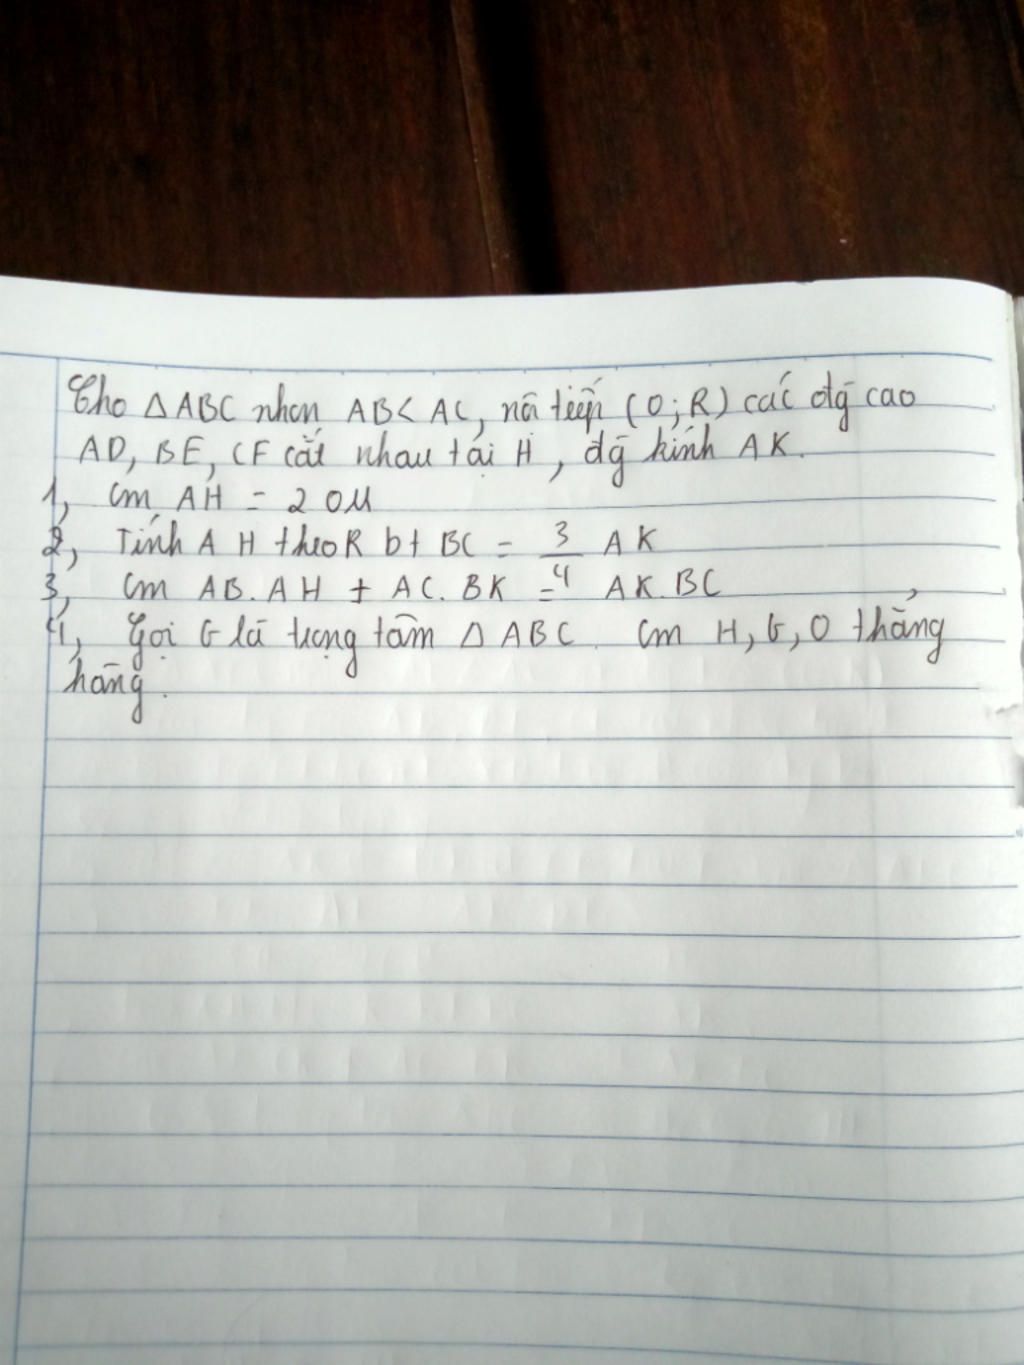 Cho △ABC nhọn AB < AC, nội tiếp (O; R) các đg cao
AD, BE, CF cắt nhau tại H, đg kính AK.
1, cm AH = 2 OM
2, Tính AH theo R bt BC = 3/4 AK
3, cm AB.AH + AC.BK = AK.BC
4, Gọi G là trọng tâm △ABC. cm H, G, O thẳng
hàng.